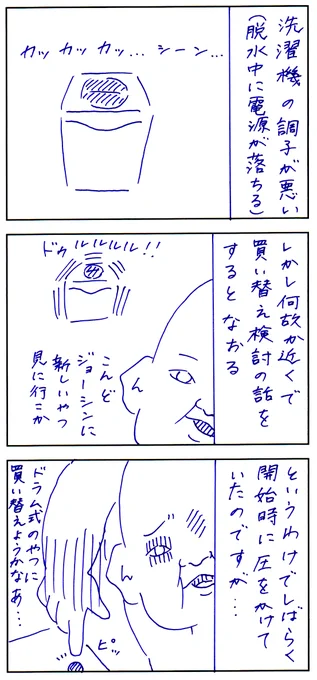 洗濯機の調子が悪い
(脱水中に電源が落ちる)
カッカッカッ... シーン...
しかし何故か近くで
買い替え検討の話を
するとなおる
ドゥルルルル!!
こんど
ジョーシンに
新しいやつ
見に行こか
というわけでしばらく
開始時に圧をかけて
いたのですが...
ドラム式のやつに
買い替えようかなあ...
ピッ